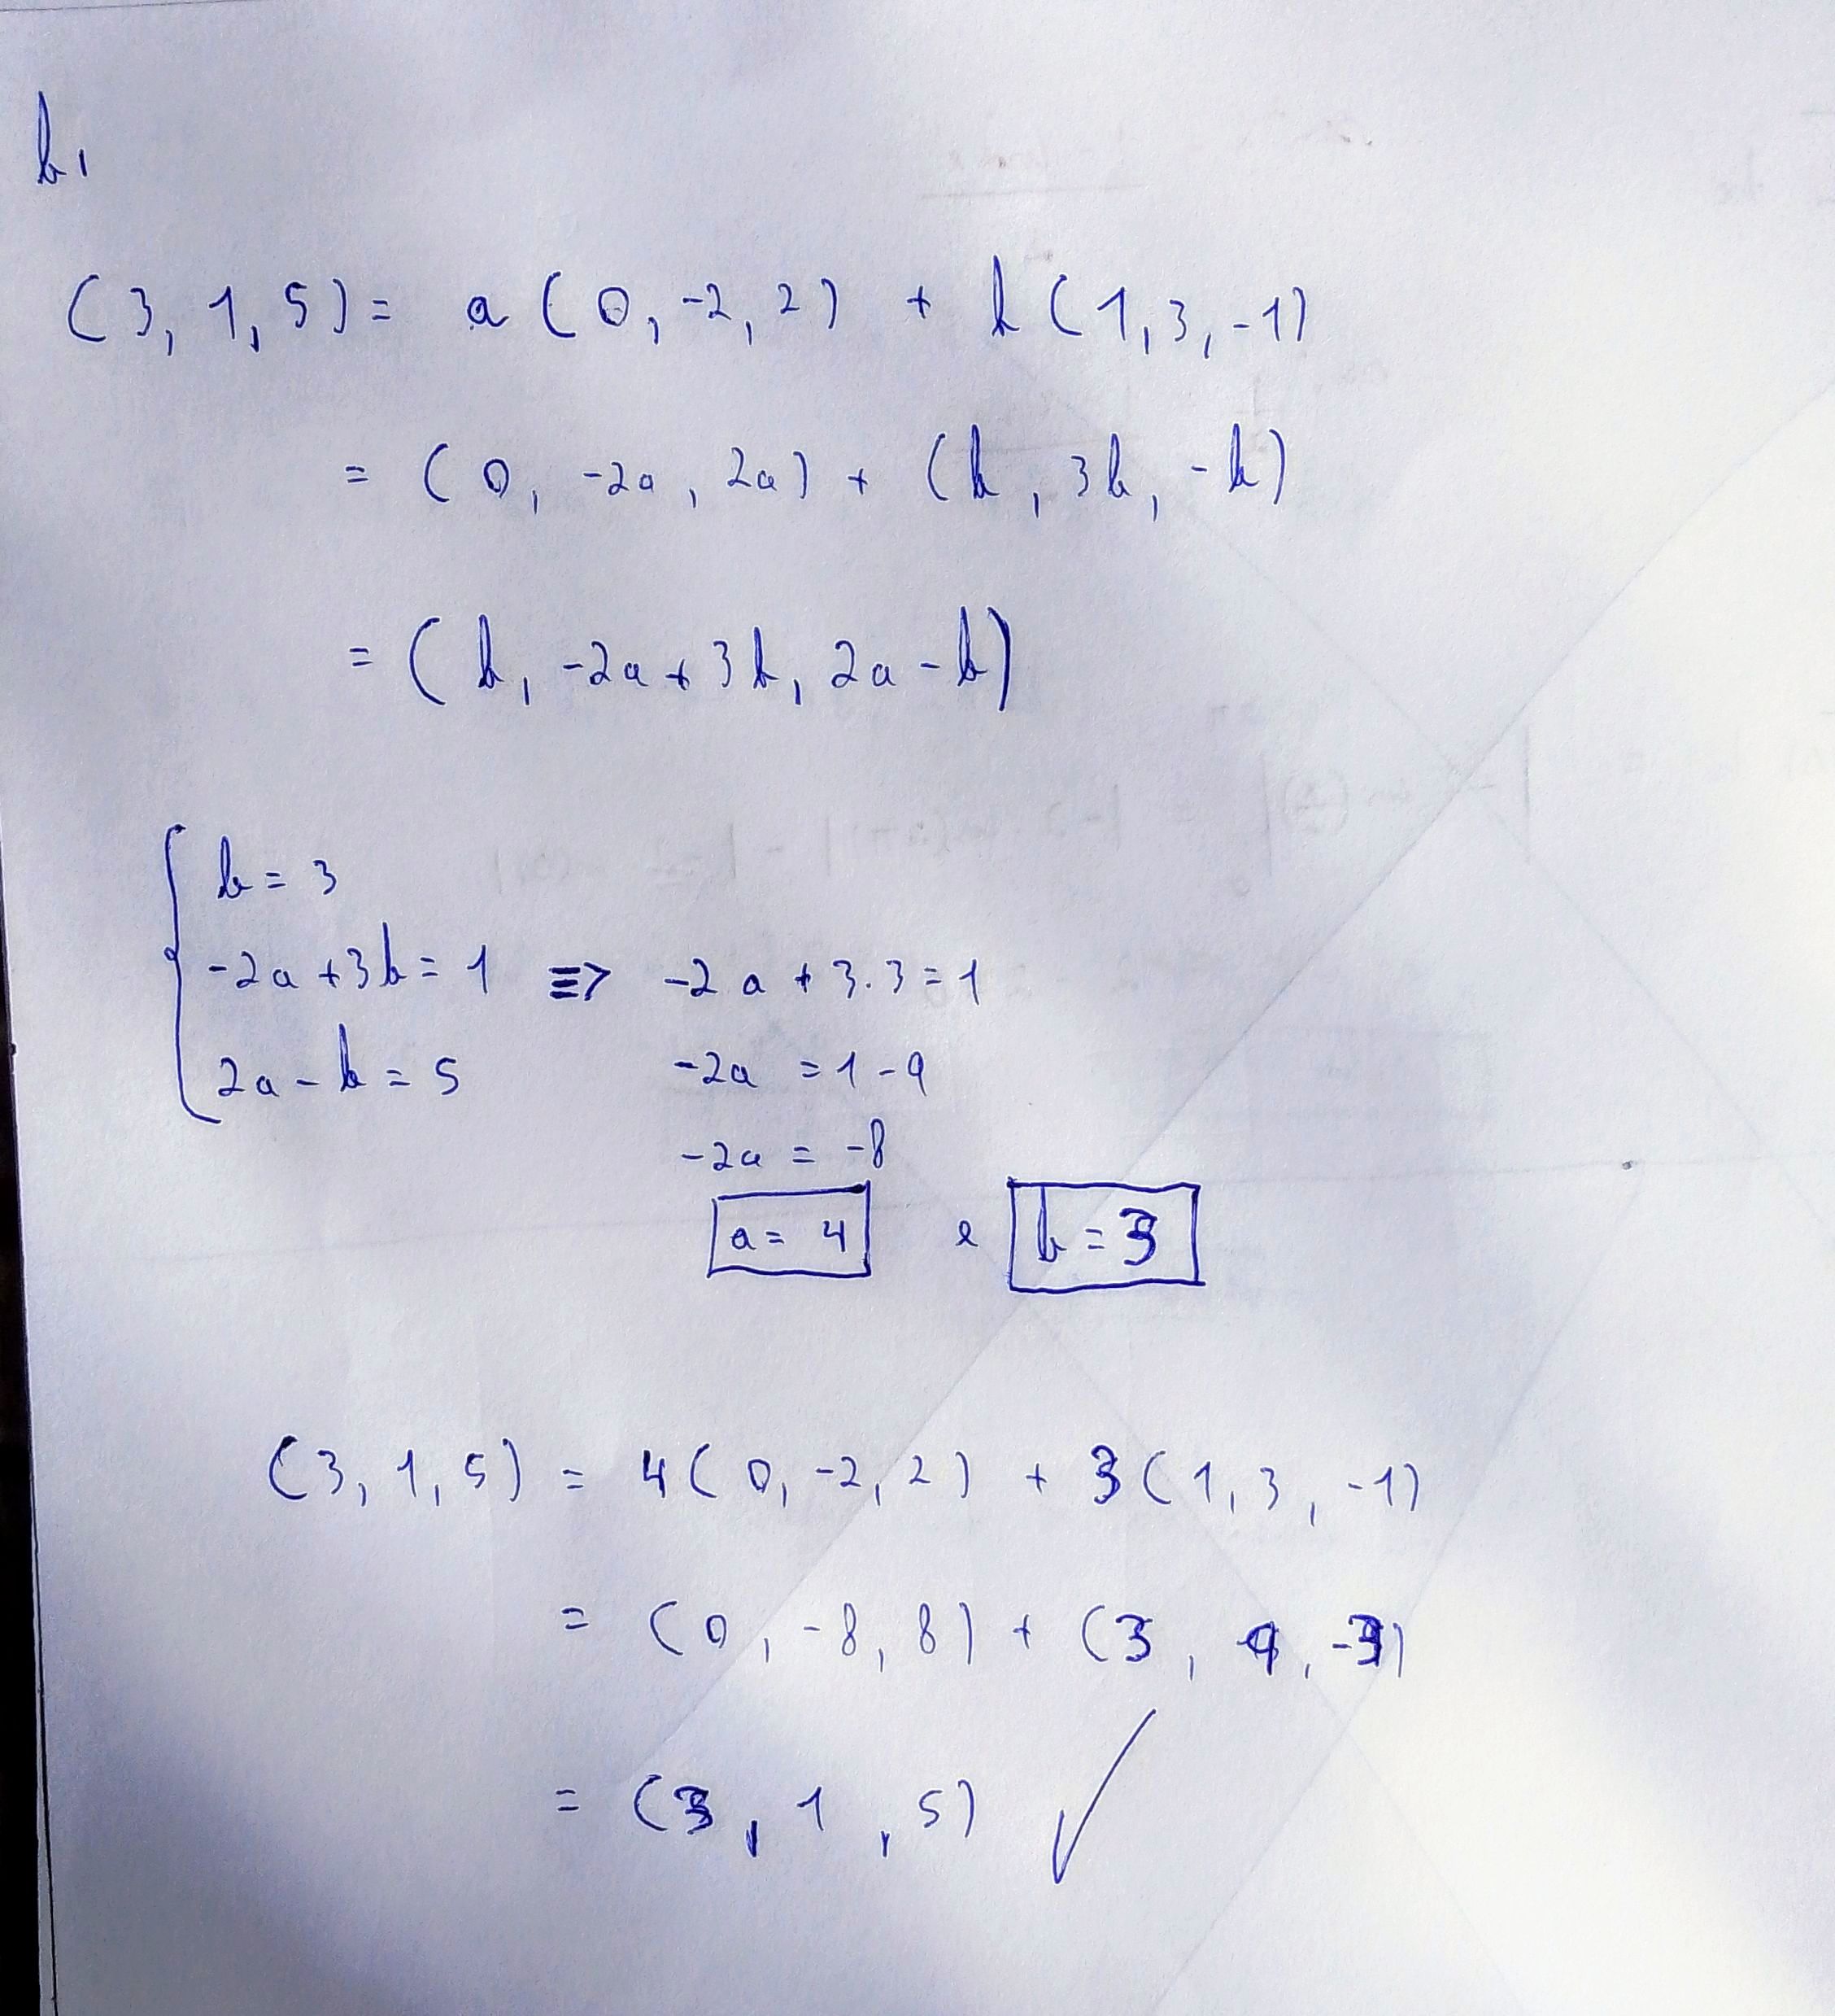 b,
(3, 1, 5) = a (0, -2, 2) + b (1, 3, -1)
= (0, -2a, 2a) + (b, 3b, -b)
= (b, -2a + 3b, 2a - b)
b = 3
-2a + 3b = 1 => -2a + 3.3 = 1
2a - b = 5 -2a = 1 - 9
-2a = -8
a = 4 e b = 3
(3, 1, 5) = 4 (0, -2, 2) + 3 (1, 3, -1)
= (0, -8, 8) + (3, 9, -3)
= (3, 1, 5) ✓